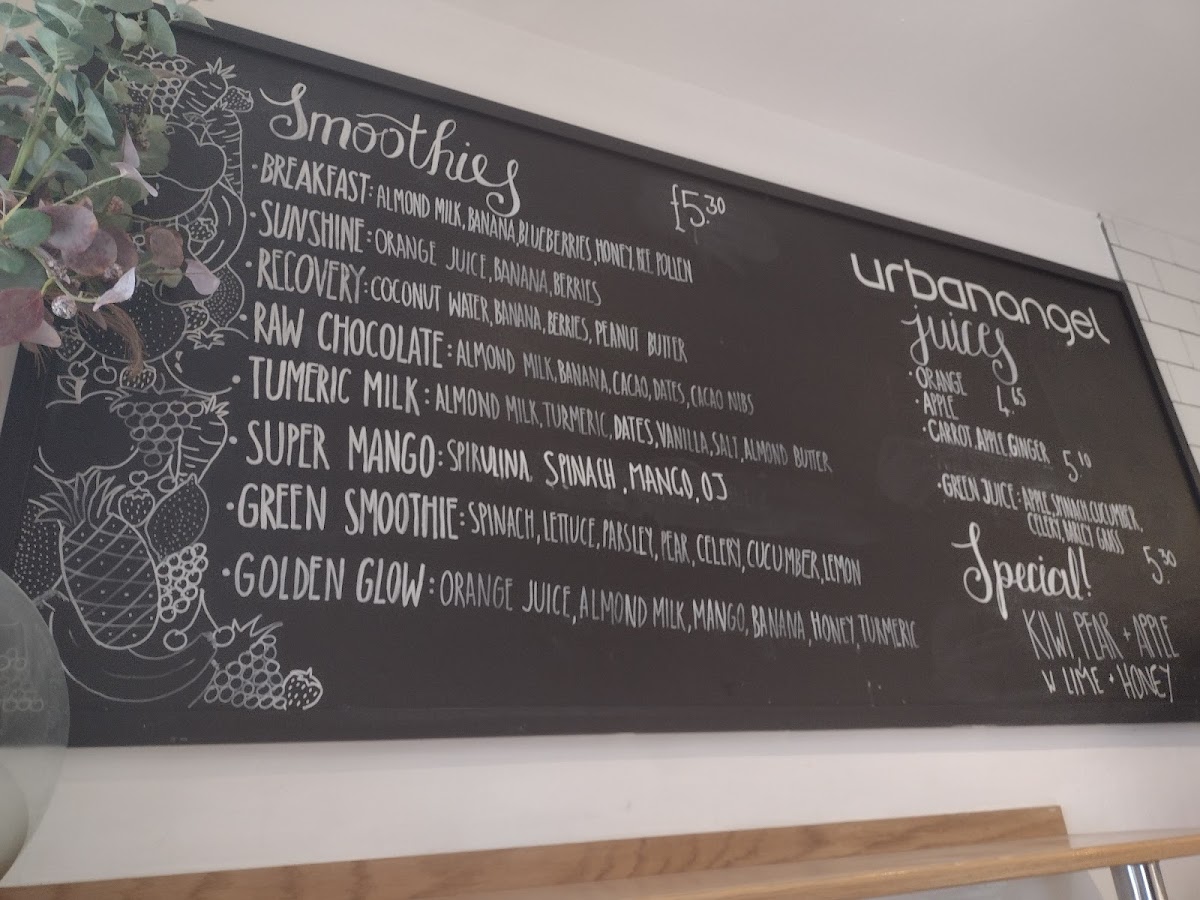 Smoothies £5.30
• BREAKFAST: ALMOND MILK, BANANA, BLUEBERRIES, HONEY, BEE POLLEN
• SUNSHINE: ORANGE JUICE, BANANA, BERRIES
• RECOVERY: COCONUT WATER, BANANA, BERRIES, PEANUT BUTTER
• RAW CHOCOLATE: ALMOND MILK, BANANA, CACAO, DATES, CACAO NIBS
• TUMERIC MILK: ALMOND MILK, TURMERIC, DATES, VANILLA, SALT, ALMOND BUTTER
• SUPER MANGO: SPIRULINA, SPINACH, MANGO, OJ
• GREEN SMOOTHIE: SPINACH, LETTUCE, PARSLEY, PEAR, CELERY, CUCUMBER, LEMON
• GOLDEN GLOW: ORANGE JUICE, ALMOND MILK, MANGO, BANANA, HONEY, TURMERIC
urbanangel
Juices
• ORANGE
• APPLE 4.65
• CARROT, APPLE, GINGER 5.10
• GREEN JUICE: APPLE, SPINACH, CUCUMBER,
CELERY, BARLEY GRASS 5.30
Special!
KIWI PEAR + APPLE
W LIME + HONEY